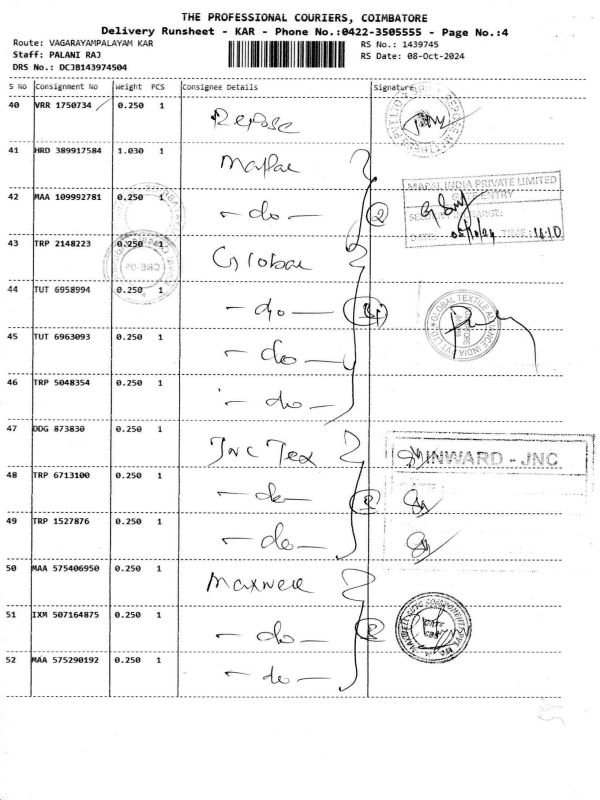 THE PROFESSIONAL COURIERS, COIMBATORE
Delivery Runsheet - KAR - Phone No.:0422-3505555 - Page No.:4
Route: VAGARAYAMPALAYAM KAR
RS No.: 1439745
Staff: PALANI RAJ
RS Date: 08-Oct-2024
DRS No.: DCJB143974504
S No Consignment No Weight PCS Consignee Details Signature
40 VRR 1750734 0.250 1 Repose
41 HRD 389917584 1.030 1
MAPAL INDIA PRIVATE LIMITED
42 MAA 109992781 0.250 1 - do - 2
TIME: 16:10
43 TRP 2148223 0.250 1 Global
44 TUT 6958994 0.250 1 - do -
GLOBAL TEXTILE ALLIANCE INDIA PVT LTD
45 TUT 6963093 0.250 1 - do -
46 TRP 5048354 0.250 1 - do -
47 DDG 873830 0.250 1 JNC Tex
INWARD - JNC
48 TRP 6713100 0.250 1 - do -
49 TRP 1527876 0.250 1 - do -
50 MAA 575406950 0.250 1
51 IXM 507164875 0.250 1 - do -
52 MAA 575290192 0.250 1 - do -